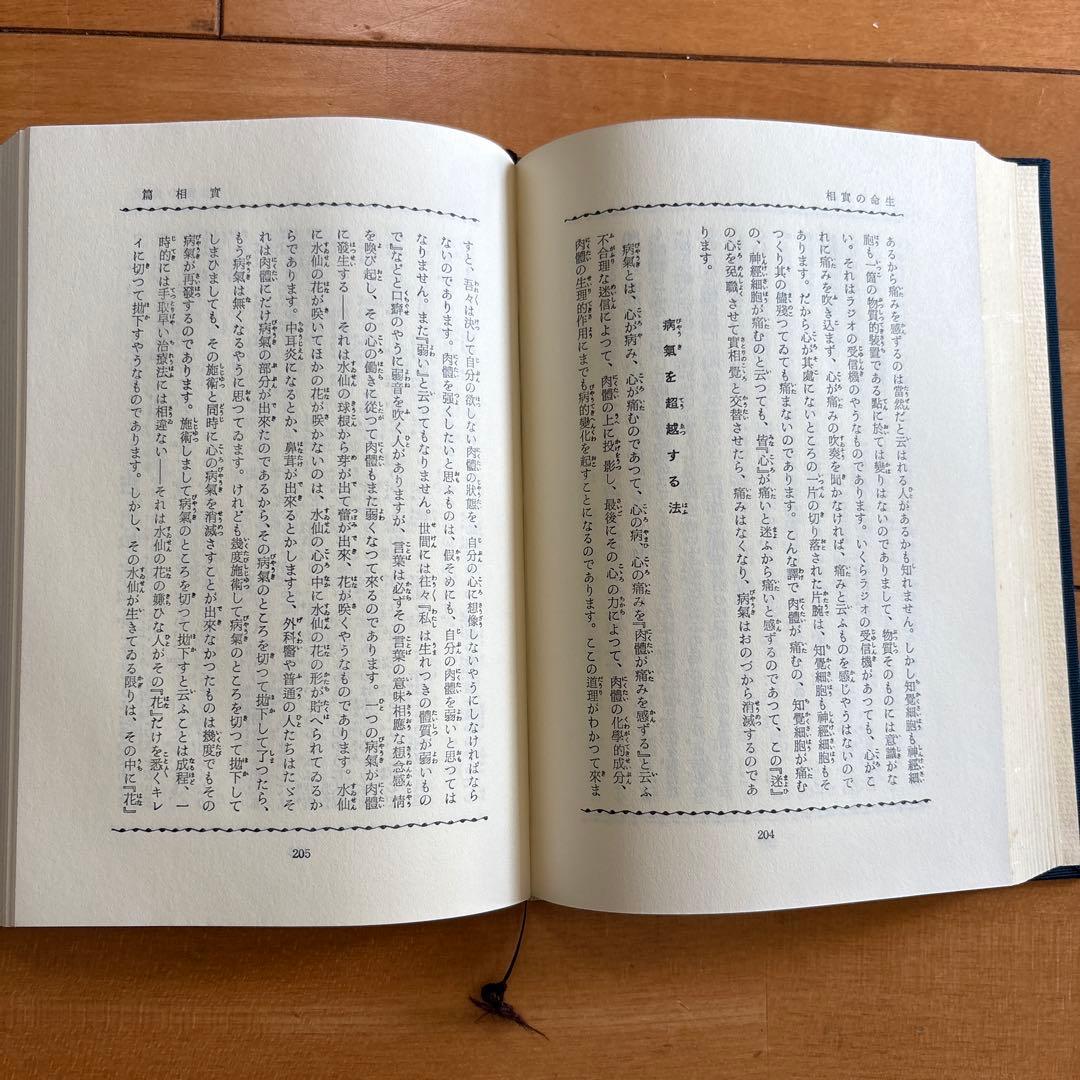 生命の實相
あるから痛みを感ずるのは當然だと云はれる人があるかも知れません。しかし知覺細胞も神經細
胞も一箇の物質的裝置である點に於ては變りはないのでありまして、物質そのものには意識がな
い。それはラジオの受信機のやうなものであります。いくらラジオの受信機があつても、心がこ
れに痛みを吹き込まず、心が痛みの吹奏を聞かなければ、痛みと云ふものを感じやうはないので
あります。だから心が其處にないところの一片の切り落された片腕は、知覺細胞も神經細胞もそ
つくり其の儘殘つてゐても痛まないのであります。こんな譯で肉體が痛むの、知覺細胞が痛む
の、神經細胞が痛むのと云つても、皆『心』が痛いと迷ふから痛いと感ずるのであつて、この『迷』
の心を免職させて實相覺と交替させたら、痛みはなくなり、病氣はおのづから消滅するのであ
ります。
病氣を超越する法
病氣とは、心が病み、心が痛むのであつて、心の病、心の痛みを『肉體が痛みを感ずる』と云ふ
不合理な迷信によつて、肉體の上に投影し、最後にその心の力によつて、肉體の化學的成分、
肉體の生理的作用にまでも病的變化を起すことになるのであります。ここの道理がわかつて來ま
204
實相篇
すと、吾々は決して自分の欲しない肉體の狀態を、自分の心に想像しないやうにしなければなら
ないのであります。肉體を強くしたいと思ふものは、假そめにも、自分の肉體を弱いと思つては
なりません。また『弱い』と云つてもなりません。世間には往々『私は生れつきの體質が弱いもの
で』などと口癖のやうに弱音を吹く人がありますが、言葉は必ずその言葉の意味相應な想念感情
を喚び起し、その心の働きに從つて肉體もまた弱くなつて來るのであります。一つの病氣が肉體
に發生する――それは水仙の球根から芽が出て蕾が出來、花が咲くやうなものであります。水仙
に水仙の花が咲いてほかの花が咲かないのは、水仙の心の中に水仙の花の形が貯へられてゐるか
らであります。中耳炎になるとか、鼻茸が出來るとかしますと、外科醫や普通の人たちはたゞそ
れは肉體にだけ病氣の部分が出來たのであるから、その病氣のところを切つて拋下して了つたら、
もう病氣は無くなるやうに思つてゐます。けれども幾度施術して病氣のところを切つて拋下して
しまひましても、その施術と同時に心の病氣を消滅さすことが出來なかつたものは幾度でもその
病氣が再發するのであります。施術しまして病氣のところを切つて拋下すと云ふことは成程、一
時的には手取早い治療法には相違ない――それは水仙の花の嫌ひな人がその『花』だけを悉くキレ
イに切つて拋下すやうなものであります。しかし、その水仙が生きてゐる限りは、その中に『花』
205